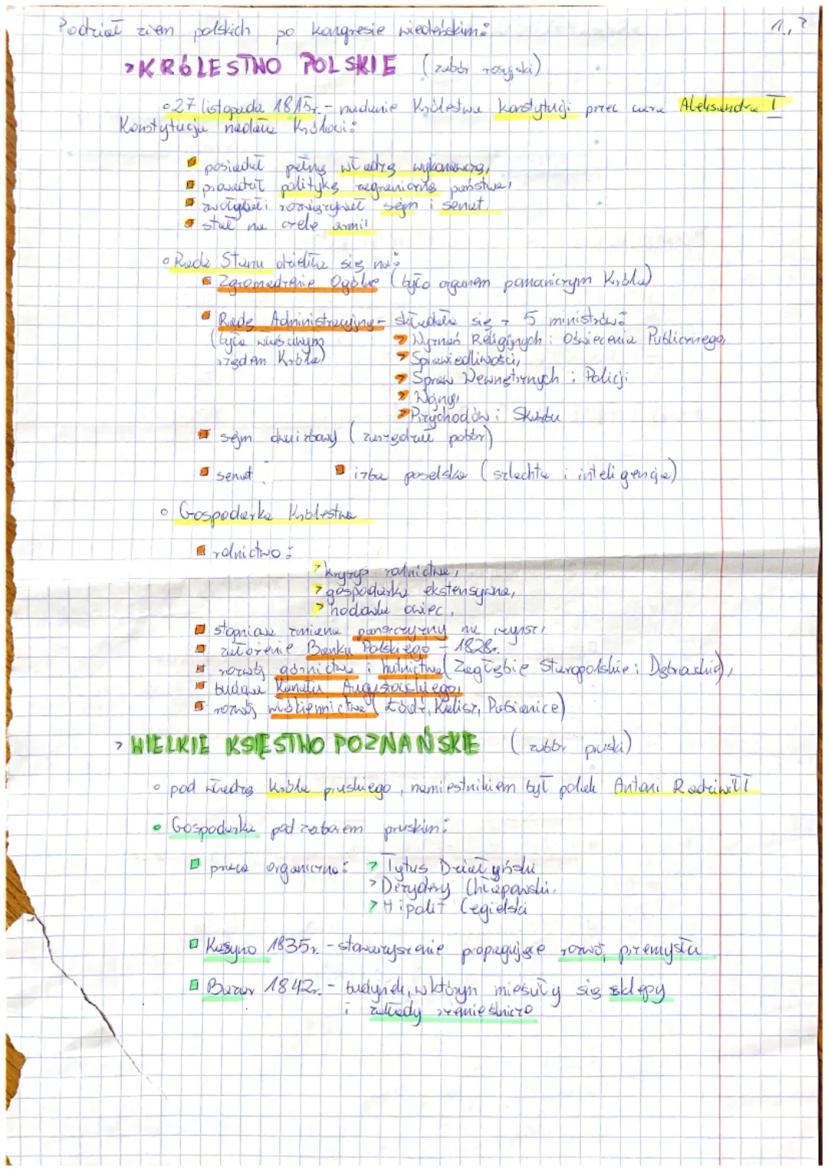 Podział ziem polskich po kongresie wiedeńskim:
1.
> KRÓLESTWO POLSKIE (zabór rosyjski)
27 listopada 1815r. - nadanie Królestwu konstytucji przez cara Aleksandra I
Konstytucja nadała Królowi:
posiadał pełną władzę wykonawczą,
prowadził politykę zagraniczną państwa,
zwoływał i rozwiązywał sejm i senat
stał na czele armii
Rada Stanu dzieliła się na:
Zgromadzenie Ogólne (było organem pomocniczym Króla)
Radę Administracyjną - składała się z 5 ministrów:
(była właściwym > Wyznań Religijnych i Oświecenia Publicznego,
rządem Króla) > Sprawiedliwości,
> Spraw Wewnętrznych i Policji
> Wojny,
> Przychodów i Skarbu
sejm dwuizbowy (zarządzał pobór)
senat izba poselska (szlachta i inteligencja)
Gospodarka Królestwa
rolnictwo:
> kryzys rolnictwa,
> gospodarka ekstensywna,
> hodowla owiec,
stopniowa zmiana pańszczyzny na czynsz,
założenie Banku Polskiego - 1828r.
rozwój górnictwa i hutnictwa (Zagłębie Staropolskie i Dąbrowskie),
budowa Kanału Augustowskiego,
rozwój włókiennictwa (Łódź, Kalisz, Pabianice)
> WIELKIE KSIĘSTWO POZNAŃSKIE (zabór pruski)
pod władzą Króla pruskiego, namiestnikiem był polak Antoni Radziwiłł
Gospodarka pod zaborem pruskim:
praca organiczna: > Tytus Działyński,
> Dezydery Chłapowski,
> Hipolit Cegielski
Kasyno 1835r. - stowarzyszenie propagujące rozwój przemysłu
Bazar 1842r. - budynek, w którym mieściły się sklepy
i zakłady rzemieślnicze